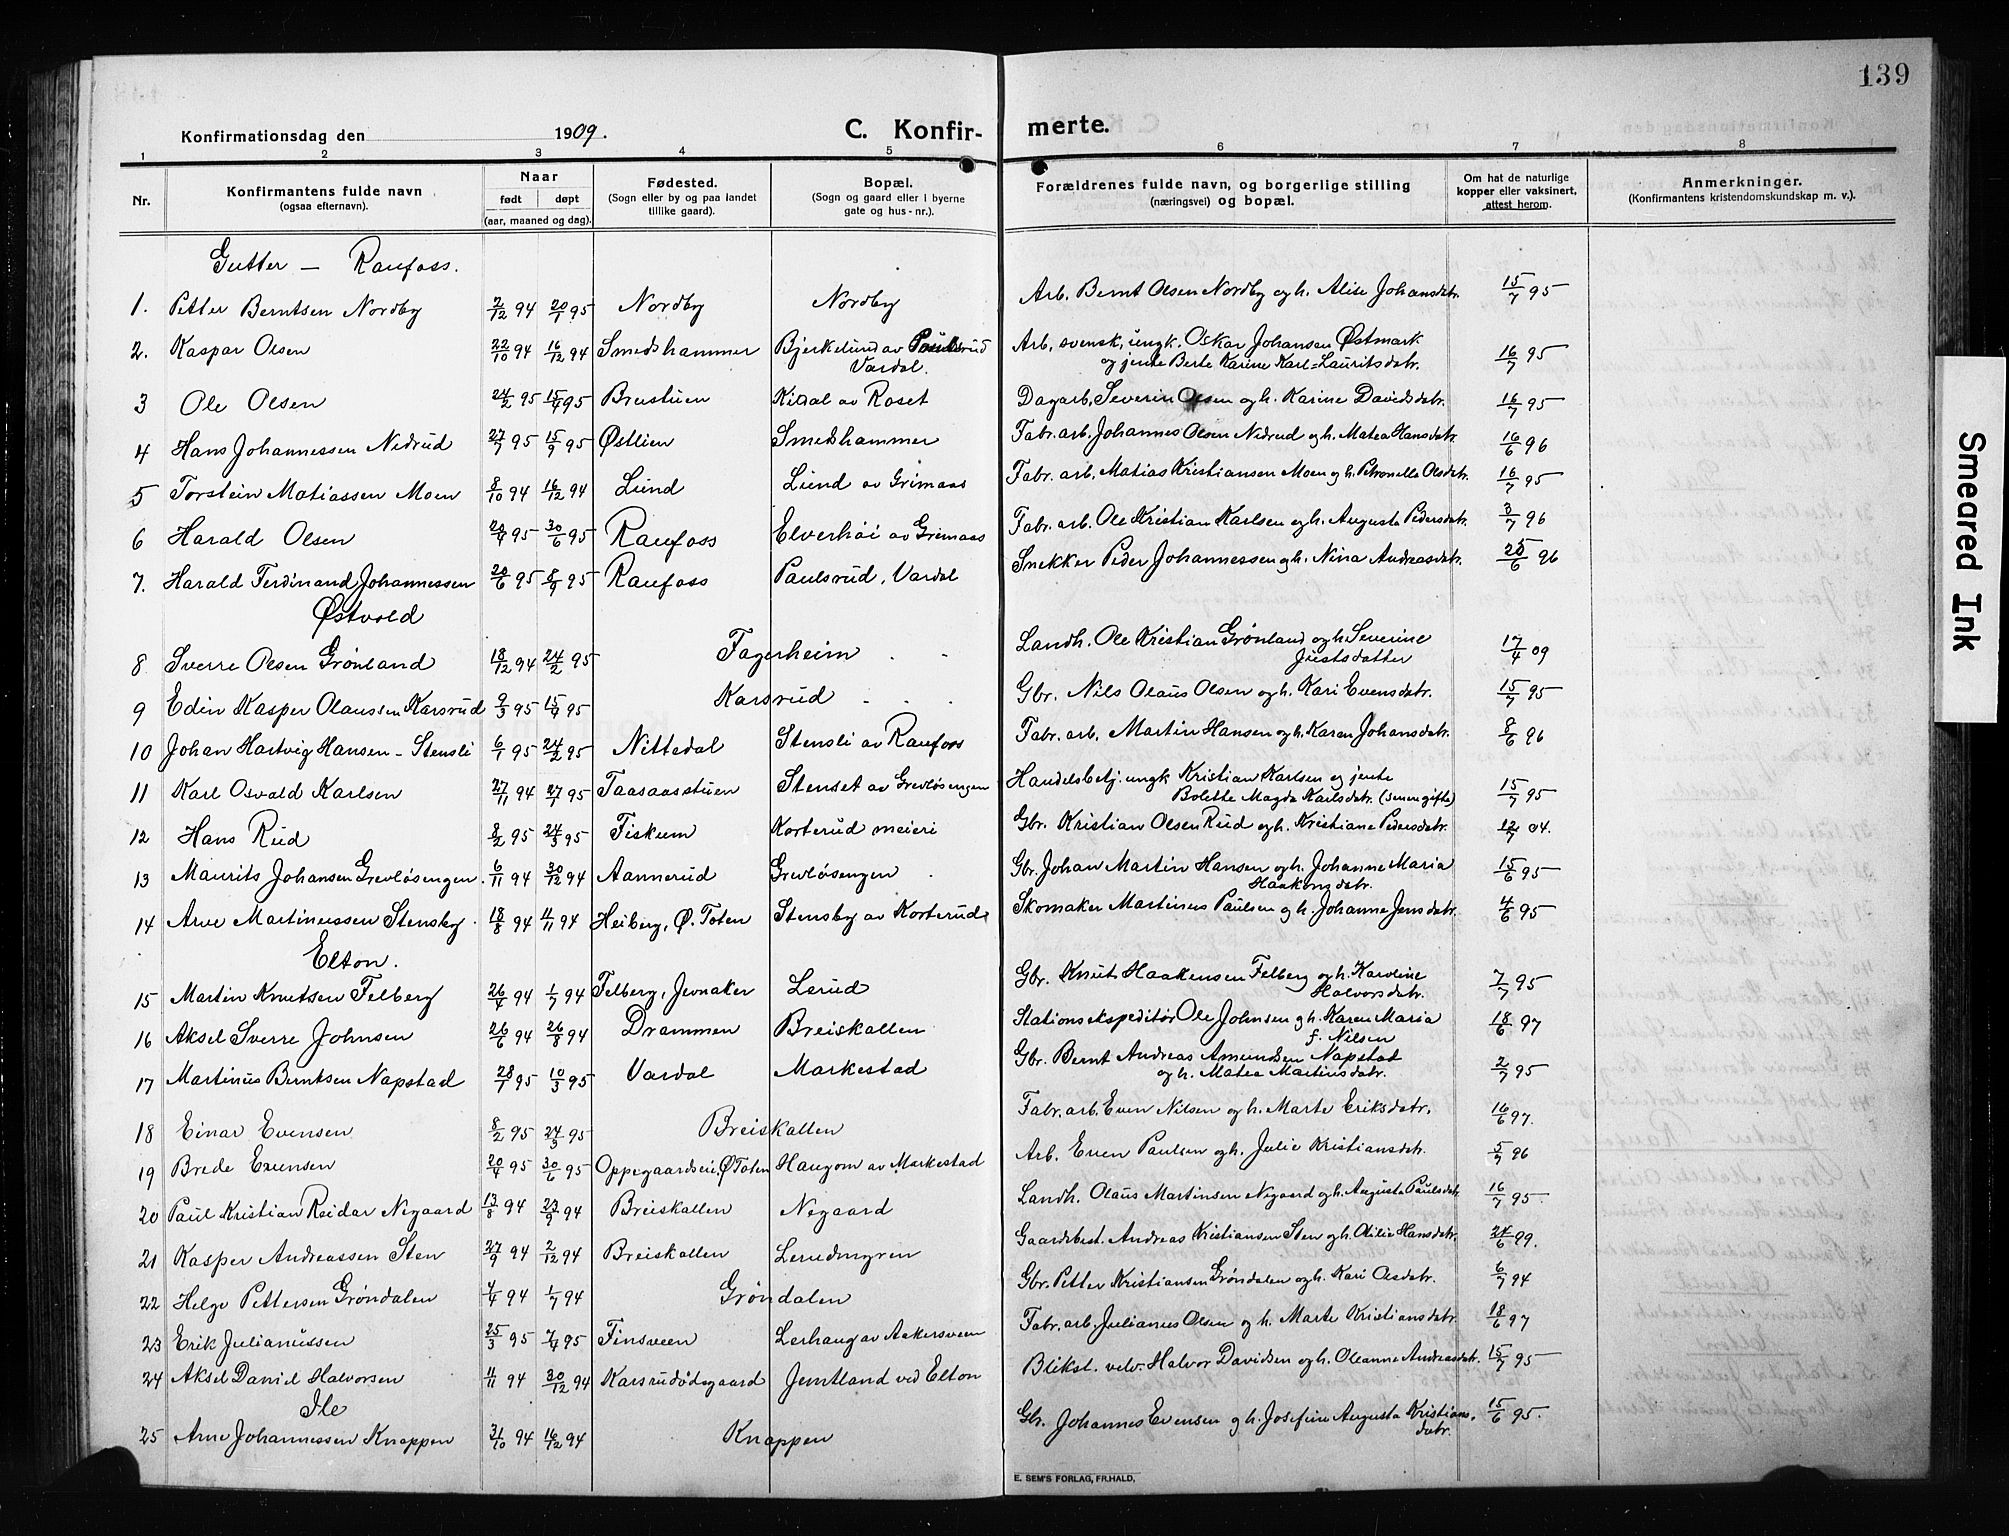 139
Konfirmationsdag den 1909. C. Konfir- merte.
1 2 3 4 5 6 7 8
Nr. Konfirmantens fulde navn (ogsaa efternavn). Naar født døpt (aar, maaned og dag). Fødested. (Sogn eller by og paa landet tillike gaard). Bopæl. (Sogn og gaard eller i byerne gate og hus-nr.). Forældrenes fulde navn, og borgerlige stilling (næringsvei) og bopæl. Om hat de naturlige kopper eller vaksinert, attest herom. Anmerkninger. (Konfirmantens kristendomskundskap m. v.).
Gutter — Raufoss.
1. Petter Berntsen Nordby 2/12 94 20/1 95 Nordby Nordby Arb. Bernt Olsen Nordby og h. Alise Johansdatr. 15/7 95
2. Kaspar Olsen 22/10 94 16/12 94 Smedshammer Bjerkelund av Paulsrud Vardal. Arb. svensk, ungk. Oskar Johansen Østmark og jente Berte Karine Karl-Lauritsdatr. 16/7 95
3 Ole Olsen 24/2 95 15/4 95 Breistuen Kidal av Roset Dagarb. Severin Olsen og h. Karine Davidsdatr. 16/7 95
4 Hans Johannessen Nedrud 27/7 95 15/9 95 Østlien Smedshammer Fabr. arb. Johannes Olsen Nedrud og h. Matea Hansdatr. 16/6 96
5 Torstein Matiassen Moen 8/10 94 16/12 94 Lund Lund av Grimaas Fabr. arb. Matias Kristiansen Moen og h. Petronelle Olsdatr. 16/7 95
6 Harald Olsen 95 30/6 95 Raufoss Elverhøi av Grimaas Fabr. arb. Ole Kristian Karlsen og h. Augusta Pedersdatr. 3/7 96
7. Harald Ferdinand Johannessen 95 8/9 95 Raufoss Paulsrud, Vardal Snekker Peder Johannessen og h. Nina Andreasdatr. 96
Østvold
8 Sverre Olsen Grønland 18/12 94 24/2 95 Fagerheim Landh. Ole Kristian Grønland og h. Severine Justsdatter 17/4 09
9 Edin Kasper Olaussen Karsrud 9/3 95 15/4 95 Karsrud Gbr. Nils Olaus Olsen og h. Kari Evensdatr. 15/7 95
10 Johan Hartvig Hansen - Stensli 6/1 95 24/2 95 Nittedal Stensli av Raufoss Fabr. arb. Martin Hansen og h. Karen Johansdatr. 8/6 96
11 Karl Osvald Karlsen 27/11 94 27/1 95 Taasaasstuen Stenset av Grevløsengen Handelsbetj. ungk Kristian Karlsen og jente Bolette Magda Karlsdatr. (senere gifte) 15/7 95
12 Hans Rud 8/2 95 24/3 95 Fiskum Korterud meieri Gbr. Kristian Olsen Rud og h. Kristiane Pedersdatr. 12/7 04.
13 Maurits Johansen Grevløsengen. 6/11 94 30/12 94 Aannerud Grevløsengen Gbr. Johan Martin Hansen og h. Johanne Maria Haakensdatr. 15/6 95
14 Arve Martinussen Stensby 18/8 94 11/11 94 Heiberg, Ø. Toten Stensby av Korterud Skomaker Martinus Paulsen og h. Johanne Jensdatr. 4/6 95
Elton.
15 Martin Knutsen Felberg 26/4 94 1/7 94 Felberg, Jevnaker Lerud Gbr. Knut Haakensen Felberg og h. Karoline Halvorsdatr. 7/7 95
16 Aksel Sverre Johnsen 26/6 94 26/8 94 Drammen Breiskallen Stationsekspeditør Ole Johnsen og h. Karen Maria f. Nilsen 18/6 97
17 Martinus Berntsen Napstad 28/1 95 10/3 95 Vardal Markestad Gbr. Bernt Andreas Amundsen Napstad og h. Matea Martinusdatr. 2/7 95
18 Einar Evensen 8/2 95 24/3 95 Breiskallen Fabr. arb. Even Nilsen og h. Marte Eriksdatr. 16/6 97.
19 Brede Evensen 20/4 95 30/6 95 Oppegaardseie, Ø Toten Haugom av Markestad Arb. Even Paulsen og h. Julie Kristiansdatr. 5/7 96
20 Paul Kristian Reidar Negaard 13/8 94 23/9 94 Breiskallen Negaard Landh. Olaus Martinsen Negaard og h. Augusta Paulsdatr. 16/7 95.
21 Kasper Andreassen Sten 27/9 94 2/12 94 Breiskallen Lerudmyren Gaardsbest. Andreas Kristiansen Sten og h. Oilie Hansdatr. 24/6 99.
22 Helge Pettersen Grøndalen 4/4 94 1/7 94 Grøndalen Gbr. Petter Kristiansen Grøndalen og h. Kari Olsdatr. 6/7 94
23 Erik Julianussen 25/3 95 7/4 95 Finsveen Lerhaug av Aakersveen Fabr. arb. Julianus Olsen og h. Marte Kristiansdatr. 18/6 97
24 Aksel Daniel Halvorsen 11/11 94 30/12 94 Karsrudødegaard Jemtland ved Elton Blikst. Halvor Davidsen og h. Oleanne Andreasdatr. 15/7 95
Ile
25 Arne Johannessen Knappen 31/10 94 16/12 94 Knappen Gbr. Johannes Evensen og h. Josefine Augusta Kristiansdatr. 15/6 95.
E. SEM'S FORLAG, FR.HALD,
Smeared Ink